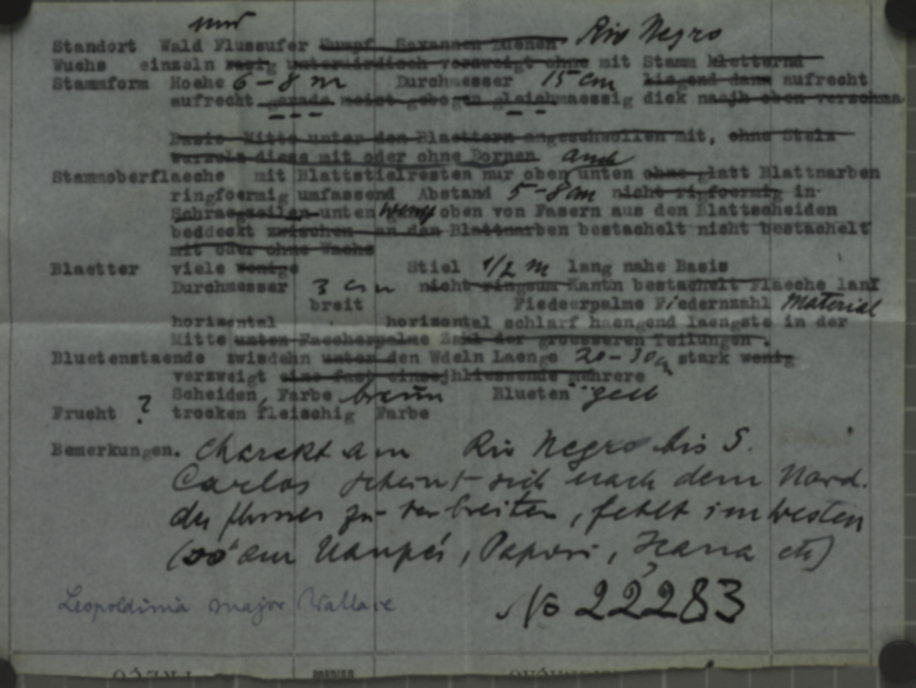 nur
Standort Wald Flussufer Sumpf Savannen Rio Negro
Wuchs einzeln rasig unterirdisch verzweigt ohne mit Stamm kletternd
Stammform Hoehe 6-8 m Durchmesser 15 cm liegend dann aufrecht
aufrecht gerade meist gebogen gleichmaessig dick nach oben verschma
Basis Mitte unter den Blaettern angeschwollen mit, ohne Stelz
wurzeln diese mit oder ohne Dornen auch
Stammoberflaeche mit Blattstielresten nur oben unten ohne glatt Blattnarben
ringfoermig umfassend Abstand 5-8 cm nicht in
Schraegzeilen unten wenig oben von Fasern aus den Blattscheiden
beddeckt zwischen an den Blattnarben bestachelt nicht bestachelt
mit oder ohne Wachs
Blaetter viele wenige Stiel 1/2 m lang nahe Basis
Durchmesser 3 cm nicht ringsum Kantn bestachelt Flaeche lang
breit Fiederpalme Fiedernzahl Material
horizontal horizontal schlarf haengend laengste in der
Mitte unten Faecherpalme Zahl der groesseren Teilungen.
Bluetenstaende zwisdehn unten den Wdeln Laenge 20-30 stark wenig
verzweigt eine fast mehrere
Scheiden, Farbe braun Blueten gelb
Frucht ? trocken fleischig Farbe
Bemerkungen. Charakt am Rio Negro bis S.
Carlos scheint sich nach dem Nord.
des Flusses zu verbreiten, fehlt im Westen
(so am Uaupés, Papori, Izana etc)
Leopoldinia major Wallace No 22283